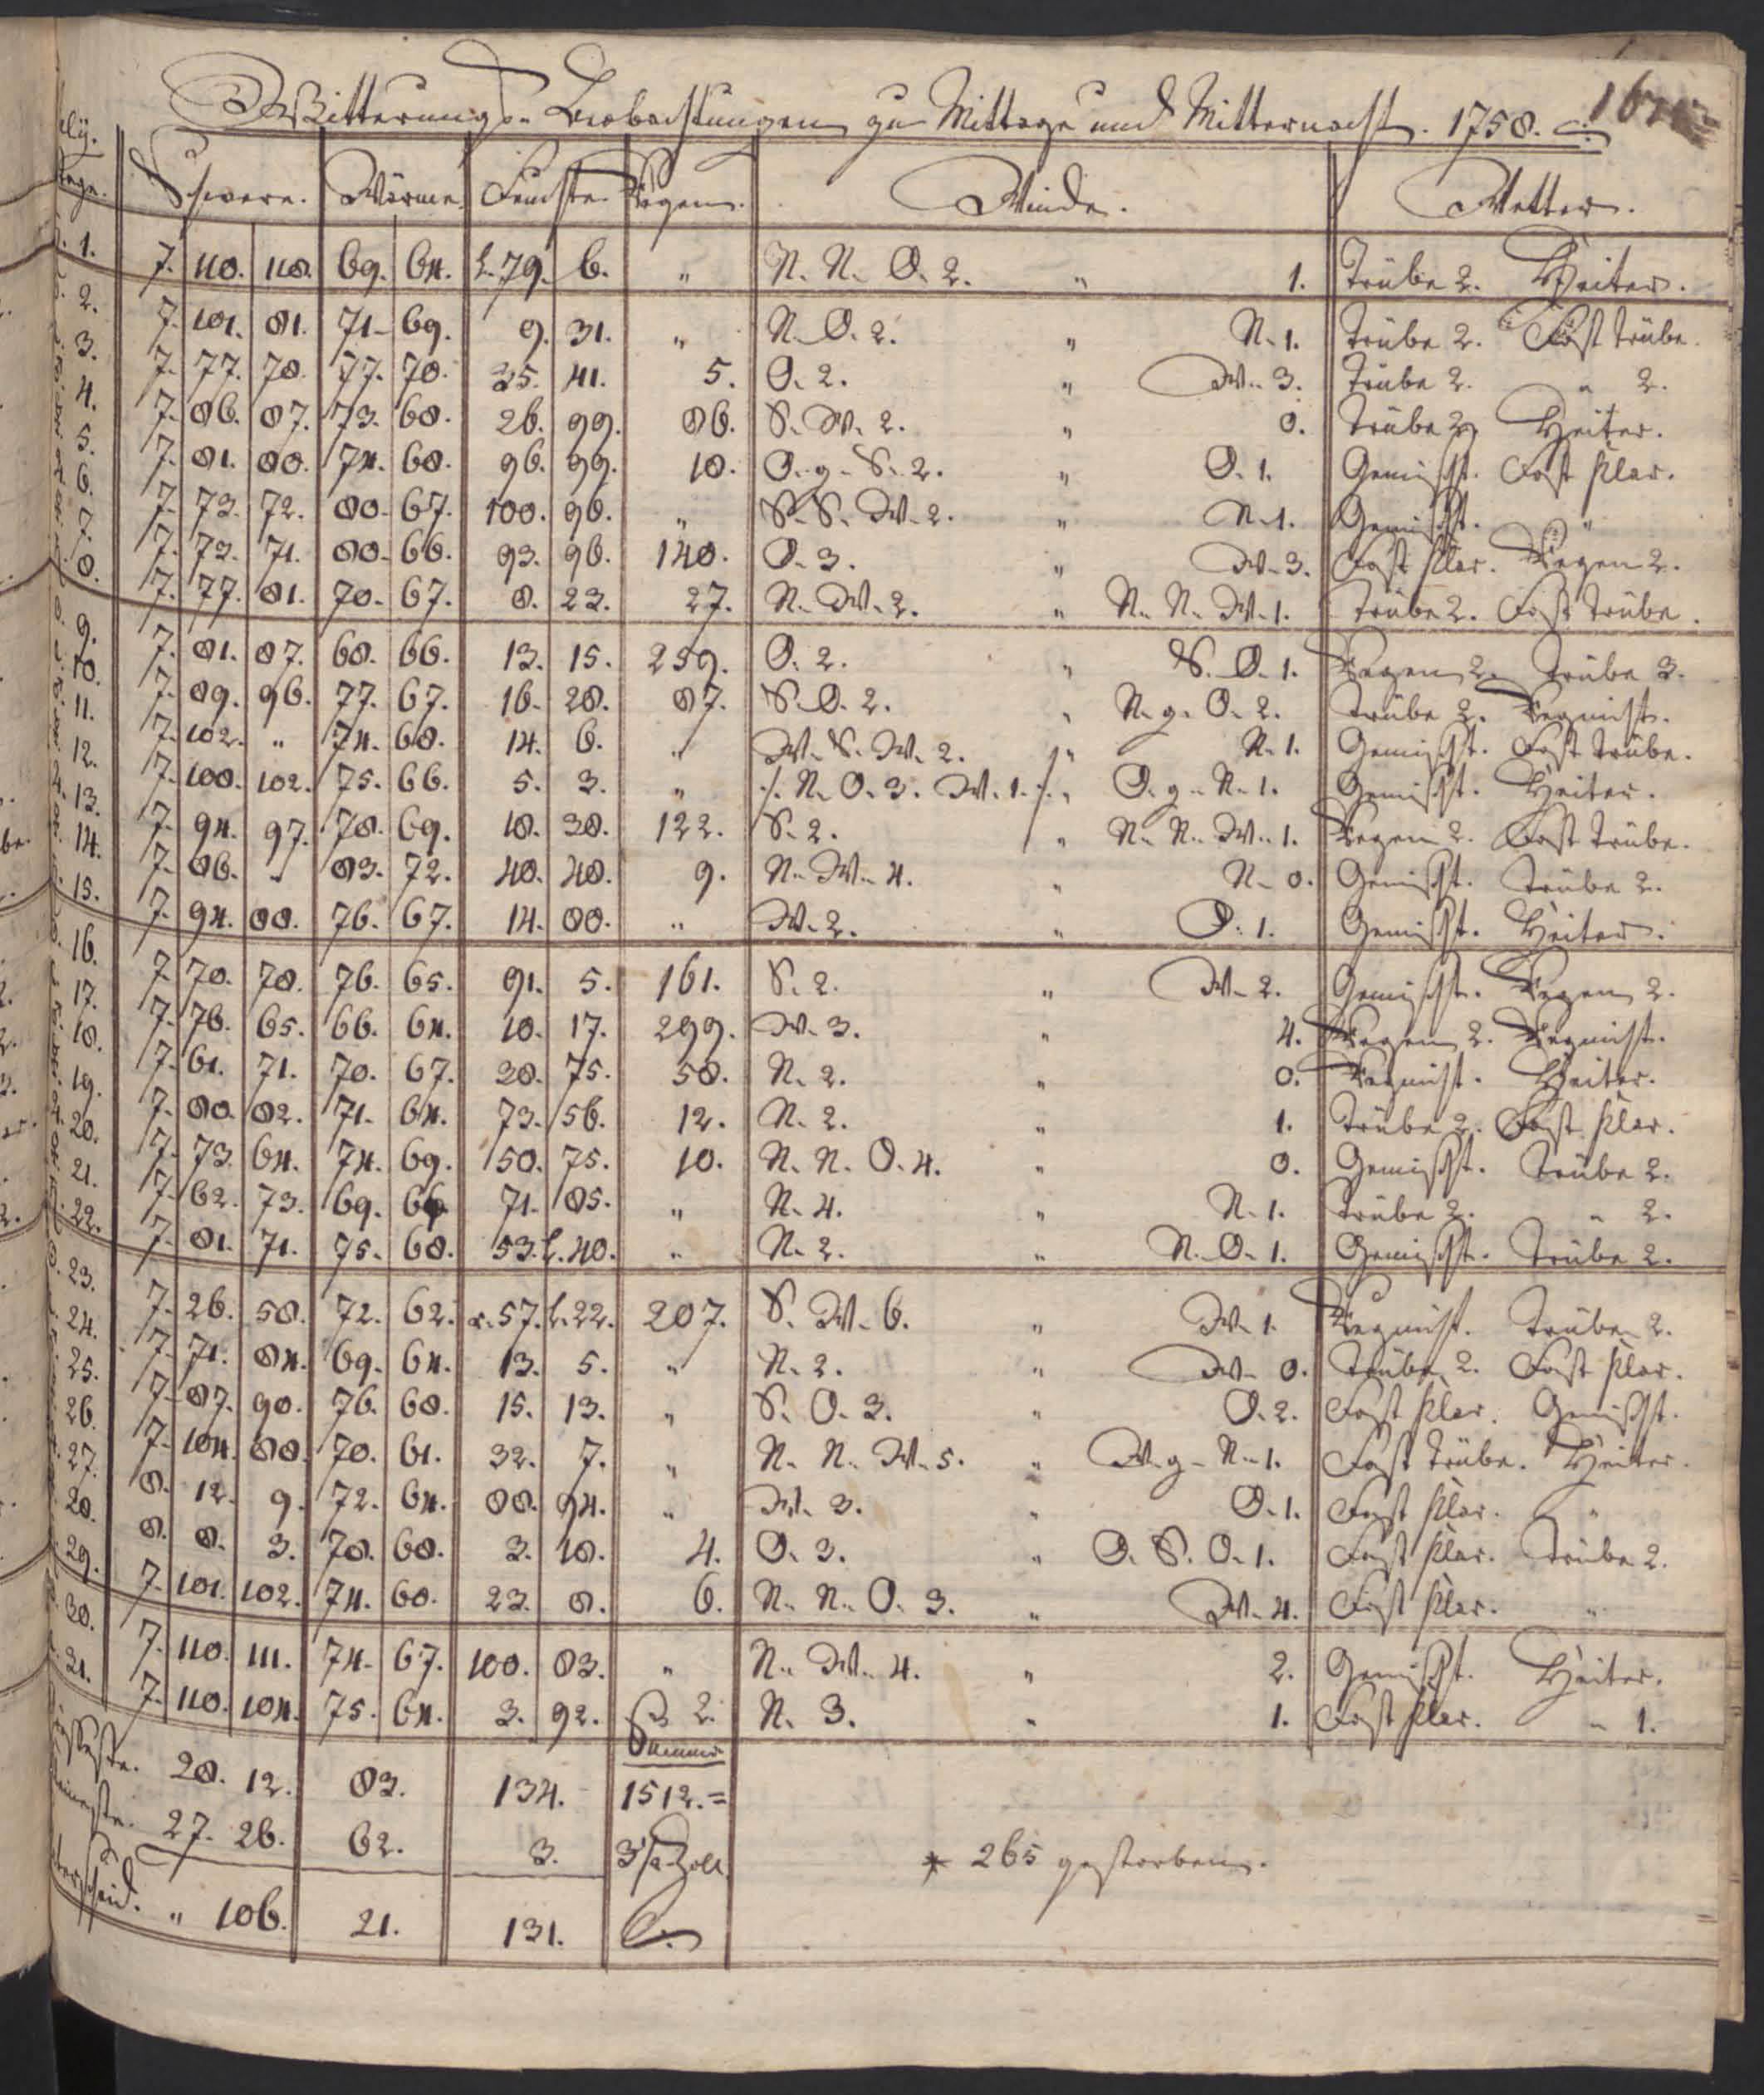 Witterungs- Beobachtungen zu Mittage und Mitternacht. 1758.
Tage. Schwere. Wärme. Feuchte. Regen. Winde. Wetter.
1. 7. 118. 118. 69. 64. l. 79. 6. " N. N. O. 2. " 1. Trübe 2. Heiter.
2. 7. 101. 81. 71. 69. 9. 31. " N. O. 2. " N. 1. Trübe 2. Fast trübe.
3. 7. 77. 78. 77. 70. 35. 41. 5. O. 2. " W. 3. Trübe 2. " 2.
4. 7. 86. 87. 73. 68. 26. 99. 86. S. W. 2. " 0. Trübe 2. Heiter.
5. 7. 81. 80. 74. 68. 96. 99. 18. O. g. S. 2. " O. 1. Gemischt. Fast klar.
6. 7. 73. 72. 80. 67. 100. 96. " S. S. W. 2. " N. 1. Gemischt. "
7. 7. 73. 71. 80. 66. 93. 96. 140. O. 3. " W. 3. Fast klar. Regen 2.
8. 7. 77. 81. 70. 67. 8. 23. 27. N. W. 2. " N. N. W. 1. Trübe 2. Fast trübe.
9. 7. 81. 87. 68. 66. 13. 15. 259. O. 2. " S. O. 1. Regen 2. Trübe 3.
10. 7. 89. 96. 77. 67. 16. 28. 87. S. O. 2. " N. g. O. 2. Trübe 2. Regnicht.
11. 7. 102. " 74. 68. 14. 6. " W. S. W. 2. " N. 1. Gemischt. Fast trübe.
12. 7. 108. 102. 75. 66. 5. 3. " /. N. O. 3. W. 1. /. " O. g. N. 1. Gemischt. Heiter.
13. 7. 94. 97. 78. 69. 18. 38. 122. S. 2. " N. N. W. 1. Regen 2. Fast trübe.
14. 7. 86. " 83. 72. 48. 48. 9. N. W. 4. " N. 0. Gemischt. Trübe 2.
15. 7. 94. 88. 76. 67. 14. 80. " W. 2. " O. 1. Gemischt. Heiter.
16. 7. 70. 78. 76. 65. 91. 5. 161. S. 2. " W. 2. Gemischt. Regen 2.
17. 7. 76. 65. 66. 64. 10. 17. 299. W. 3. " 4. Regen 2. Regnicht.
18. 7. 61. 71. 70. 67. 30. 75. 58. N. 2. " 0. Regnicht. Heiter.
19. 7. 80. 82. 71. 64. 73. 56. 12. N. 2. " 1. Trübe 2. Fast klar.
20. 7. 73. 64. 74. 69. 50. 75. 10. N. N. O. 4. " 0. Gemischt. Trübe 2.
21. 7. 62. 73. 69. 66. 71. 85. " N. 4. " N. 1. Trübe 2. " 2.
22. 7. 81. 71. 75. 68. 53. l. 40. " N. 2. " N. O. 1. Gemischt. Trübe 2.
23. 7. 26. 58. 72. 62. r. 57. l. 22. 207. S. W. 6. " W. 1. Regnicht. Trübe 2.
24. 7. 71. 84. 69. 64. 13. 5. " N. 2. " W. 0. Trübe 2. Fast klar.
25. 7. 87. 90. 76. 68. 15. 13. " S. O. 3. " O. 2. Fast klar. Gemischt.
26. 7. 104. 88. 70. 61. 32. 7. " N. N. W. 5. " W. g. N. 1. Fast trübe. Heiter.
27. 8. 12. 9. 72. 64. 88. 94. " W. 3. " O. 1. Fast klar. "
28. 8. 8. 3. 78. 68. 3. 18. 4. O. 3. " O. S. O. 1. Fast klar. Trübe 2.
29. 7. 101. 102. 74. 60. 23. 8. 6. N. N. O. 3. " W. 4. Fast klar. "
30. 7. 110. 111. 74. 67. 100. 83. " N. W. 4. " 2. Gemischt. Heiter.
31. 7. 110. 104. 75. 64. 3. 92. 2. N. 3. " 1. Fast klar. " 1.
Summa
28. 12. 83. 134. 1512.=
27. 26. 62. 3. Zoll
* 265 gestorben.
" 106. 21. 131.